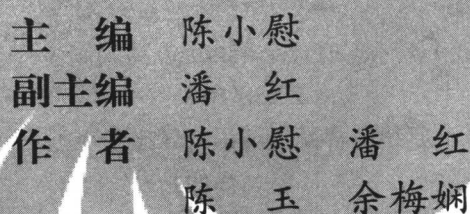 主 编 陈小慰
副主编 潘 红
作 者 陈小慰 潘 红
陈 玉 余梅娴